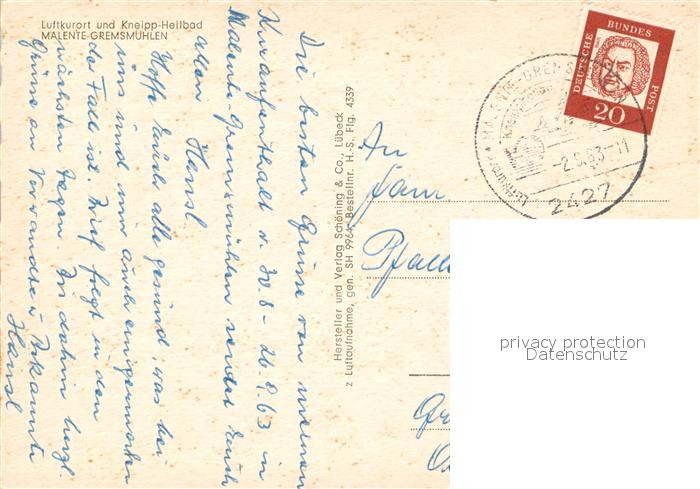 Luftkurort und Kneipp-Heilbad
MALENTE-GREMSMÜHLEN
Die besten Grüsse von meinem
Kuraufenthalt v. 30.8 - 26.9.63 in
Malente-Gremsmühlen sendet Euch
allen Hansl
Hoffe Euch alle gesund, was bei
uns und mir auch einigermaßen
der Fall ist. Brief folgt in den
nächsten Tagen. Bis dahin herzl.
Grüsse an Verwandte u. Bekannte
Hansl
Hersteller und Verlag Schöning & Co., Lübeck
z Luftaufnahme, gen. SH 996 Bestellnr. H. S. Flg. 4339
DEUTSCHE BUNDES POST
20
MALENTE-GREMS
Luftkurort
-2.9.63-11
2427
An
Fam.
privacy protection
Datenschutz